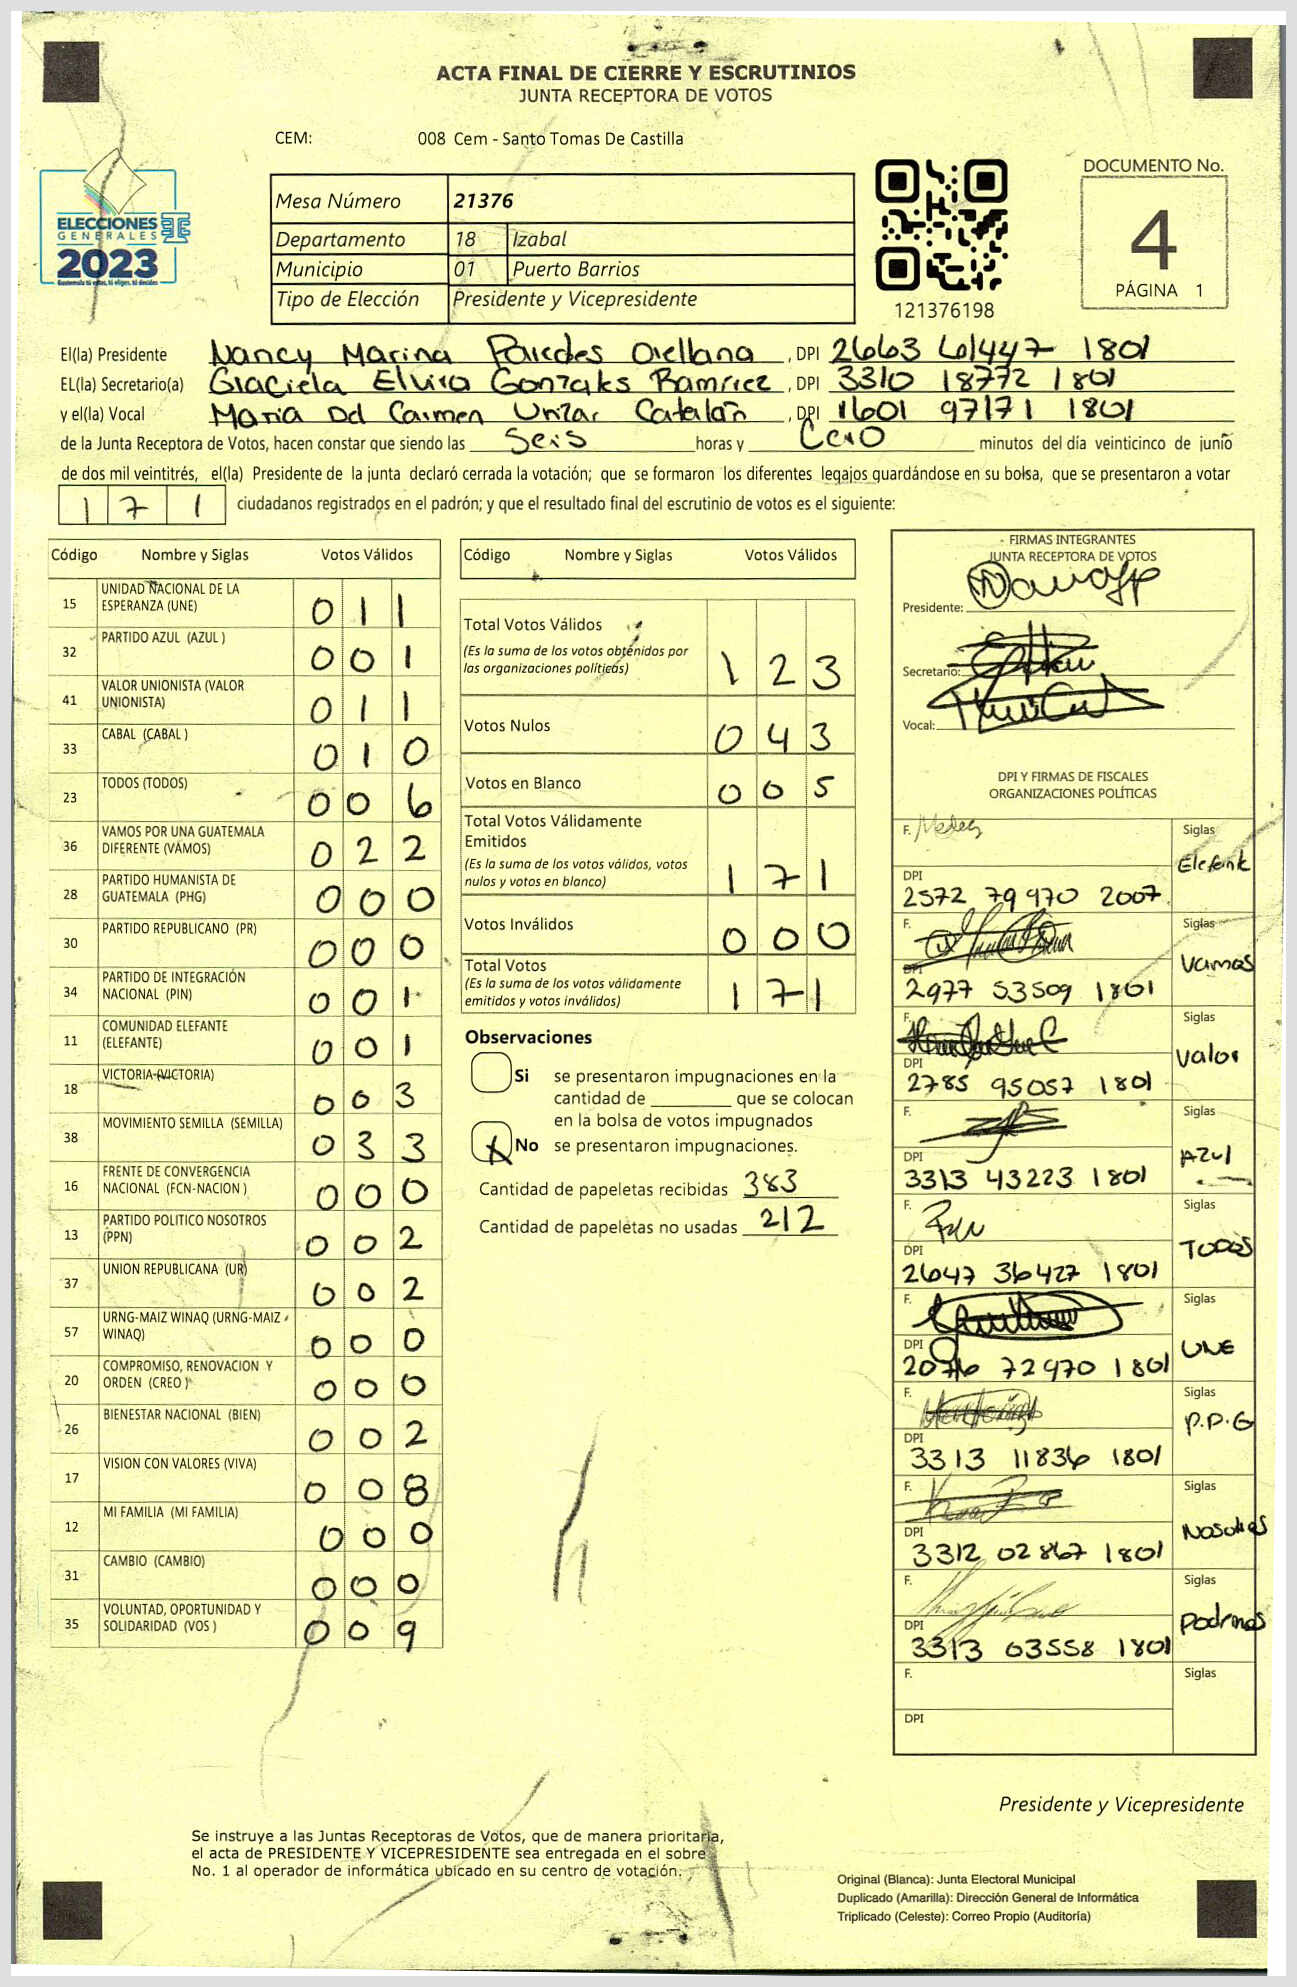 ACTA FINAL DE CIERRE Y ESCRUTINIOS
JUNTA RECEPTORA DE VOTOS
CEM: 008 Cem - Santo Tomas De Castilla
ELECCIONES
GENERALES
2023
Guatemala tú votas, tú eliges, tú decides
Mesa Número 21376
Departamento 18 Izabal
Municipio 01 Puerto Barrios
Tipo de Elección Presidente y Vicepresidente
121376198
DOCUMENTO No.
4
PÁGINA 1
El(la) Presidente Nancy Marina Paredes Orellana, DPI 2663 61447 1801
EL(la) Secretario(a) Graciela Elvira Gonzales Ramirez, DPI 3310 18772 1801
y el(la) Vocal Maria Del Carmen Unizar Catalán, DPI 1601 97171 1801
de la Junta Receptora de Votos, hacen constar que siendo las Seis horas y Cero minutos del día veinticinco de junio
de dos mil veintitrés, el(la) Presidente de la junta declaró cerrada la votación; que se formaron los diferentes legajos guardándose en su bolsa, que se presentaron a votar
171 ciudadanos registrados en el padrón; y que el resultado final del escrutinio de votos es el siguiente:
Código Nombre y Siglas Votos Válidos
15 UNIDAD NACIONAL DE LA ESPERANZA (UNE) 011
32 PARTIDO AZUL (AZUL ) 001
41 VALOR UNIONISTA (VALOR UNIONISTA) 011
33 CABAL (CABAL ) 010
23 TODOS (TODOS) 006
36 VAMOS POR UNA GUATEMALA DIFERENTE (VAMOS) 022
28 PARTIDO HUMANISTA DE GUATEMALA (PHG) 000
30 PARTIDO REPUBLICANO (PR) 000
34 PARTIDO DE INTEGRACIÓN NACIONAL (PIN) 001
11 COMUNIDAD ELEFANTE (ELEFANTE) 001
18 VICTORIA (VICTORIA) 003
38 MOVIMIENTO SEMILLA (SEMILLA) 033
16 FRENTE DE CONVERGENCIA NACIONAL (FCN-NACION ) 000
13 PARTIDO POLITICO NOSOTROS (PPN) 002
37 UNION REPUBLICANA (UR) 002
57 URNG-MAIZ WINAQ (URNG-MAIZ WINAQ) 000
20 COMPROMISO, RENOVACION Y ORDEN (CREO ) 000
26 BIENESTAR NACIONAL (BIEN) 002
17 VISION CON VALORES (VIVA) 008
12 MI FAMILIA (MI FAMILIA) 000
31 CAMBIO (CAMBIO) 000
35 VOLUNTAD, OPORTUNIDAD Y SOLIDARIDAD (VOS ) 009
Código Nombre y Siglas Votos Válidos
Total Votos Válidos
(Es la suma de los votos obtenidos por las organizaciones políticas) 123
Votos Nulos 043
Votos en Blanco 005
Total Votos Válidamente Emitidos
(Es la suma de los votos válidos, votos nulos y votos en blanco) 171
Votos Inválidos 000
Total Votos
(Es la suma de los votos válidamente emitidos y votos inválidos) 171
Observaciones
Si se presentaron impugnaciones en la
cantidad de ________ que se colocan
en la bolsa de votos impugnados
X No se presentaron impugnaciones.
Cantidad de papeletas recibidas 383
Cantidad de papeletas no usadas 212
FIRMAS INTEGRANTES
JUNTA RECEPTORA DE VOTOS
Presidente:
Secretario:
Vocal:
DPI Y FIRMAS DE FISCALES
ORGANIZACIONES POLÍTICAS
F. Siglas
DPI
2572 79970 2007
F. Siglas Vamos
DPI
2977 53509 1801
F. Siglas Valor
DPI
2785 95057 1801
F. Siglas Azul
DPI
3313 43223 1801
F. Siglas TODOS
DPI
2647 36427 1801
F. Siglas UNE
DPI
2076 72970 1801
F. Siglas P.P.G
DPI
3313 11836 1801
F. Siglas Nosotros
DPI
3312 02867 1801
F. Siglas Podemos
DPI
3313 03558 1801
F. Siglas
DPI
Presidente y Vicepresidente
Se instruye a las Juntas Receptoras de Votos, que de manera prioritaria,
el acta de PRESIDENTE Y VICEPRESIDENTE sea entregada en el sobre
No. 1 al operador de informática ubicado en su centro de votación.
Original (Blanca): Junta Electoral Municipal
Duplicado (Amarilla): Dirección General de Informática
Triplicado (Celeste): Correo Propio (Auditoría)